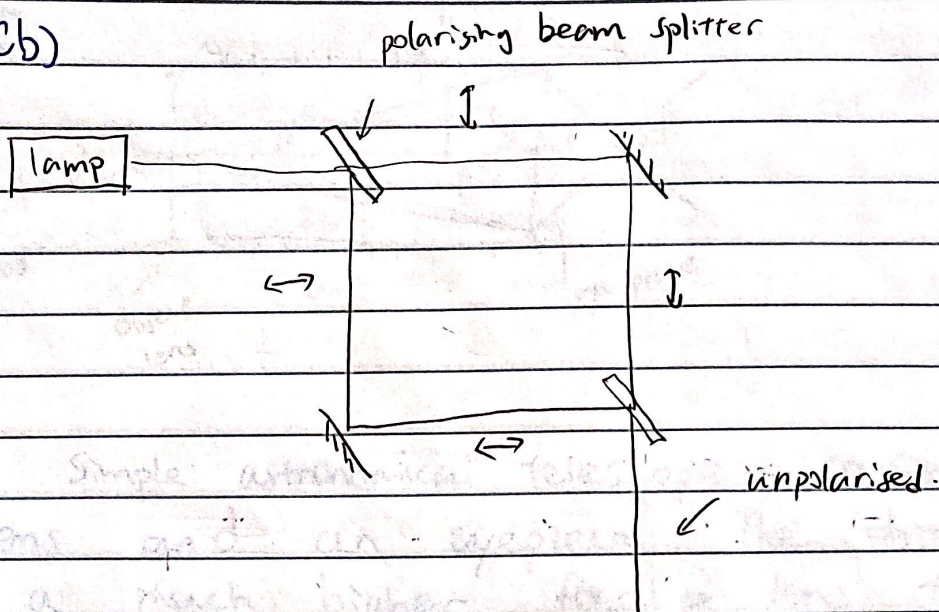 (b)
polarising beam splitter
lamp
unpolarised.